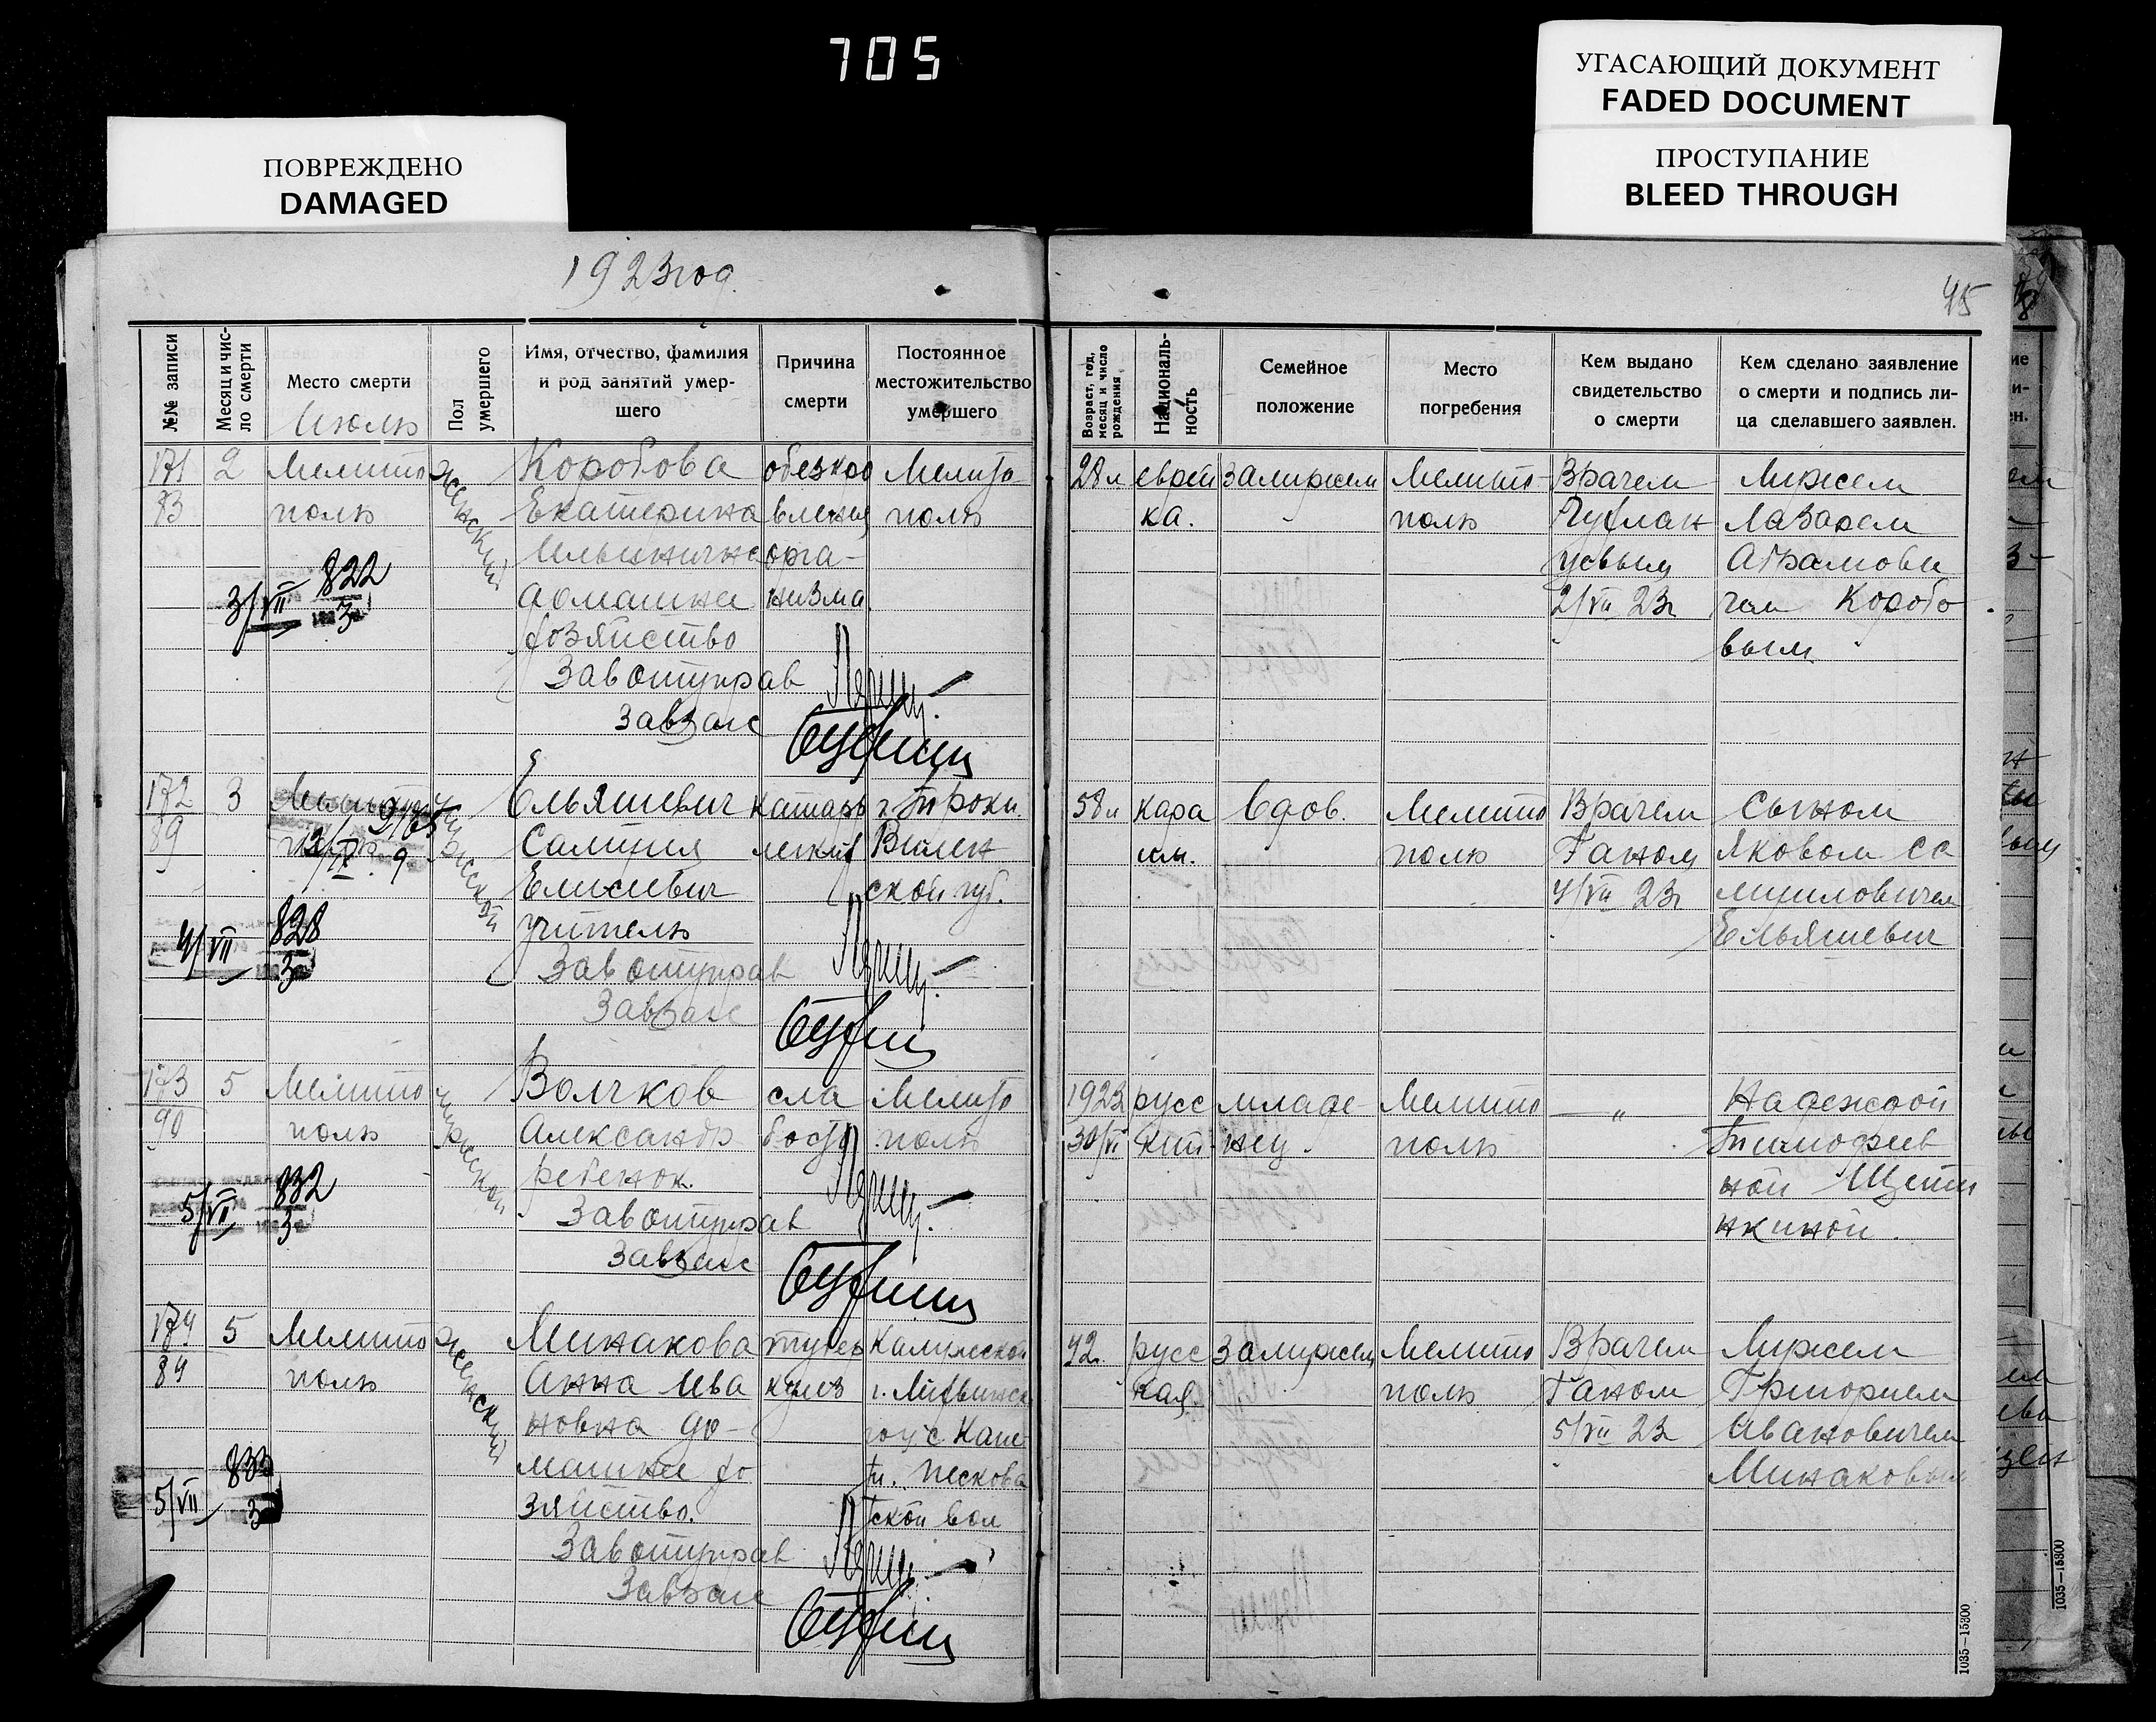 705
УГАСАЮЩИЙ ДОКУМЕНТ
FADED DOCUMENT
ПРОСТУПАНИЕ
BLEED THROUGH
ПОВРЕЖДЕНО
DAMAGED
1923 год.
45
№№ записи
Месяц и чис-
ло смерти
Место смерти
Июль
Пол
умершего
Имя, отчество, фамилия
и род занятий умер-
шего
Причина
смерти
Постоянное
местожительство
умершего
Возраст, год,
месяц и число
рождения
Националь-
ность
Семейное
положение
Место
погребения
Кем выдано
свидетельство
о смерти
Кем сделано заявление
о смерти и подпись ли-
ца сделавшего заявлен.
171
83
2
Мелито
поль
женский
Коробова
Екатерина
Ильинична
домашнее
хозяйство
обезкро
вления
орга-
низма.
Мелито
поль
28 л
еврей
ка.
замужем
Мелито-
поль
Врачем
2/VII 23г
Мужем
Лазарем
Абрамови
чем Коробо
вым
3/VII 822
3
Завотуправ
Завзагс
172
89
3
Мелито
поль
мужской
Ельяшевич
Самуил
Елисиевич
учитель
катарь
легких
г. Троки
Вилен
ской губ.
58 л
кара
им.
вдов.
Мелито
поль
Врачем
Ганом
4/VII 23г
Сыном
Яковом Са
муиловичем
Ельяшевич
4/VII 828
3
Завотуправ
Завзагс
173
90
5
Мелито
поль
мужской
Волчков
Александр
ребенок.
сла
бость
Мелито
поль
1923
30/VI
русс
кий
младе-
нец.
Мелито
поль
— „ —
Надеждой
Тимофеев
ной Щети
нкиной.
5/VII 832
3
Завотуправ
Завзагс
174
84
5
Мелито
поль
женский
Минакова
Анна Ива
новна до-
машнее хо
зяйство.
тубер
кулез
Калужской
г. Лихвинск
ской вол
42
русс
кая
Замужем
Мелито
поль
Врачем
Ганом
5/VII 23
Мужем
Григорием
Ивановичем
Минаковым
5/VII 833
3
Завотуправ
Завзагс
1035—15300
1035—15300